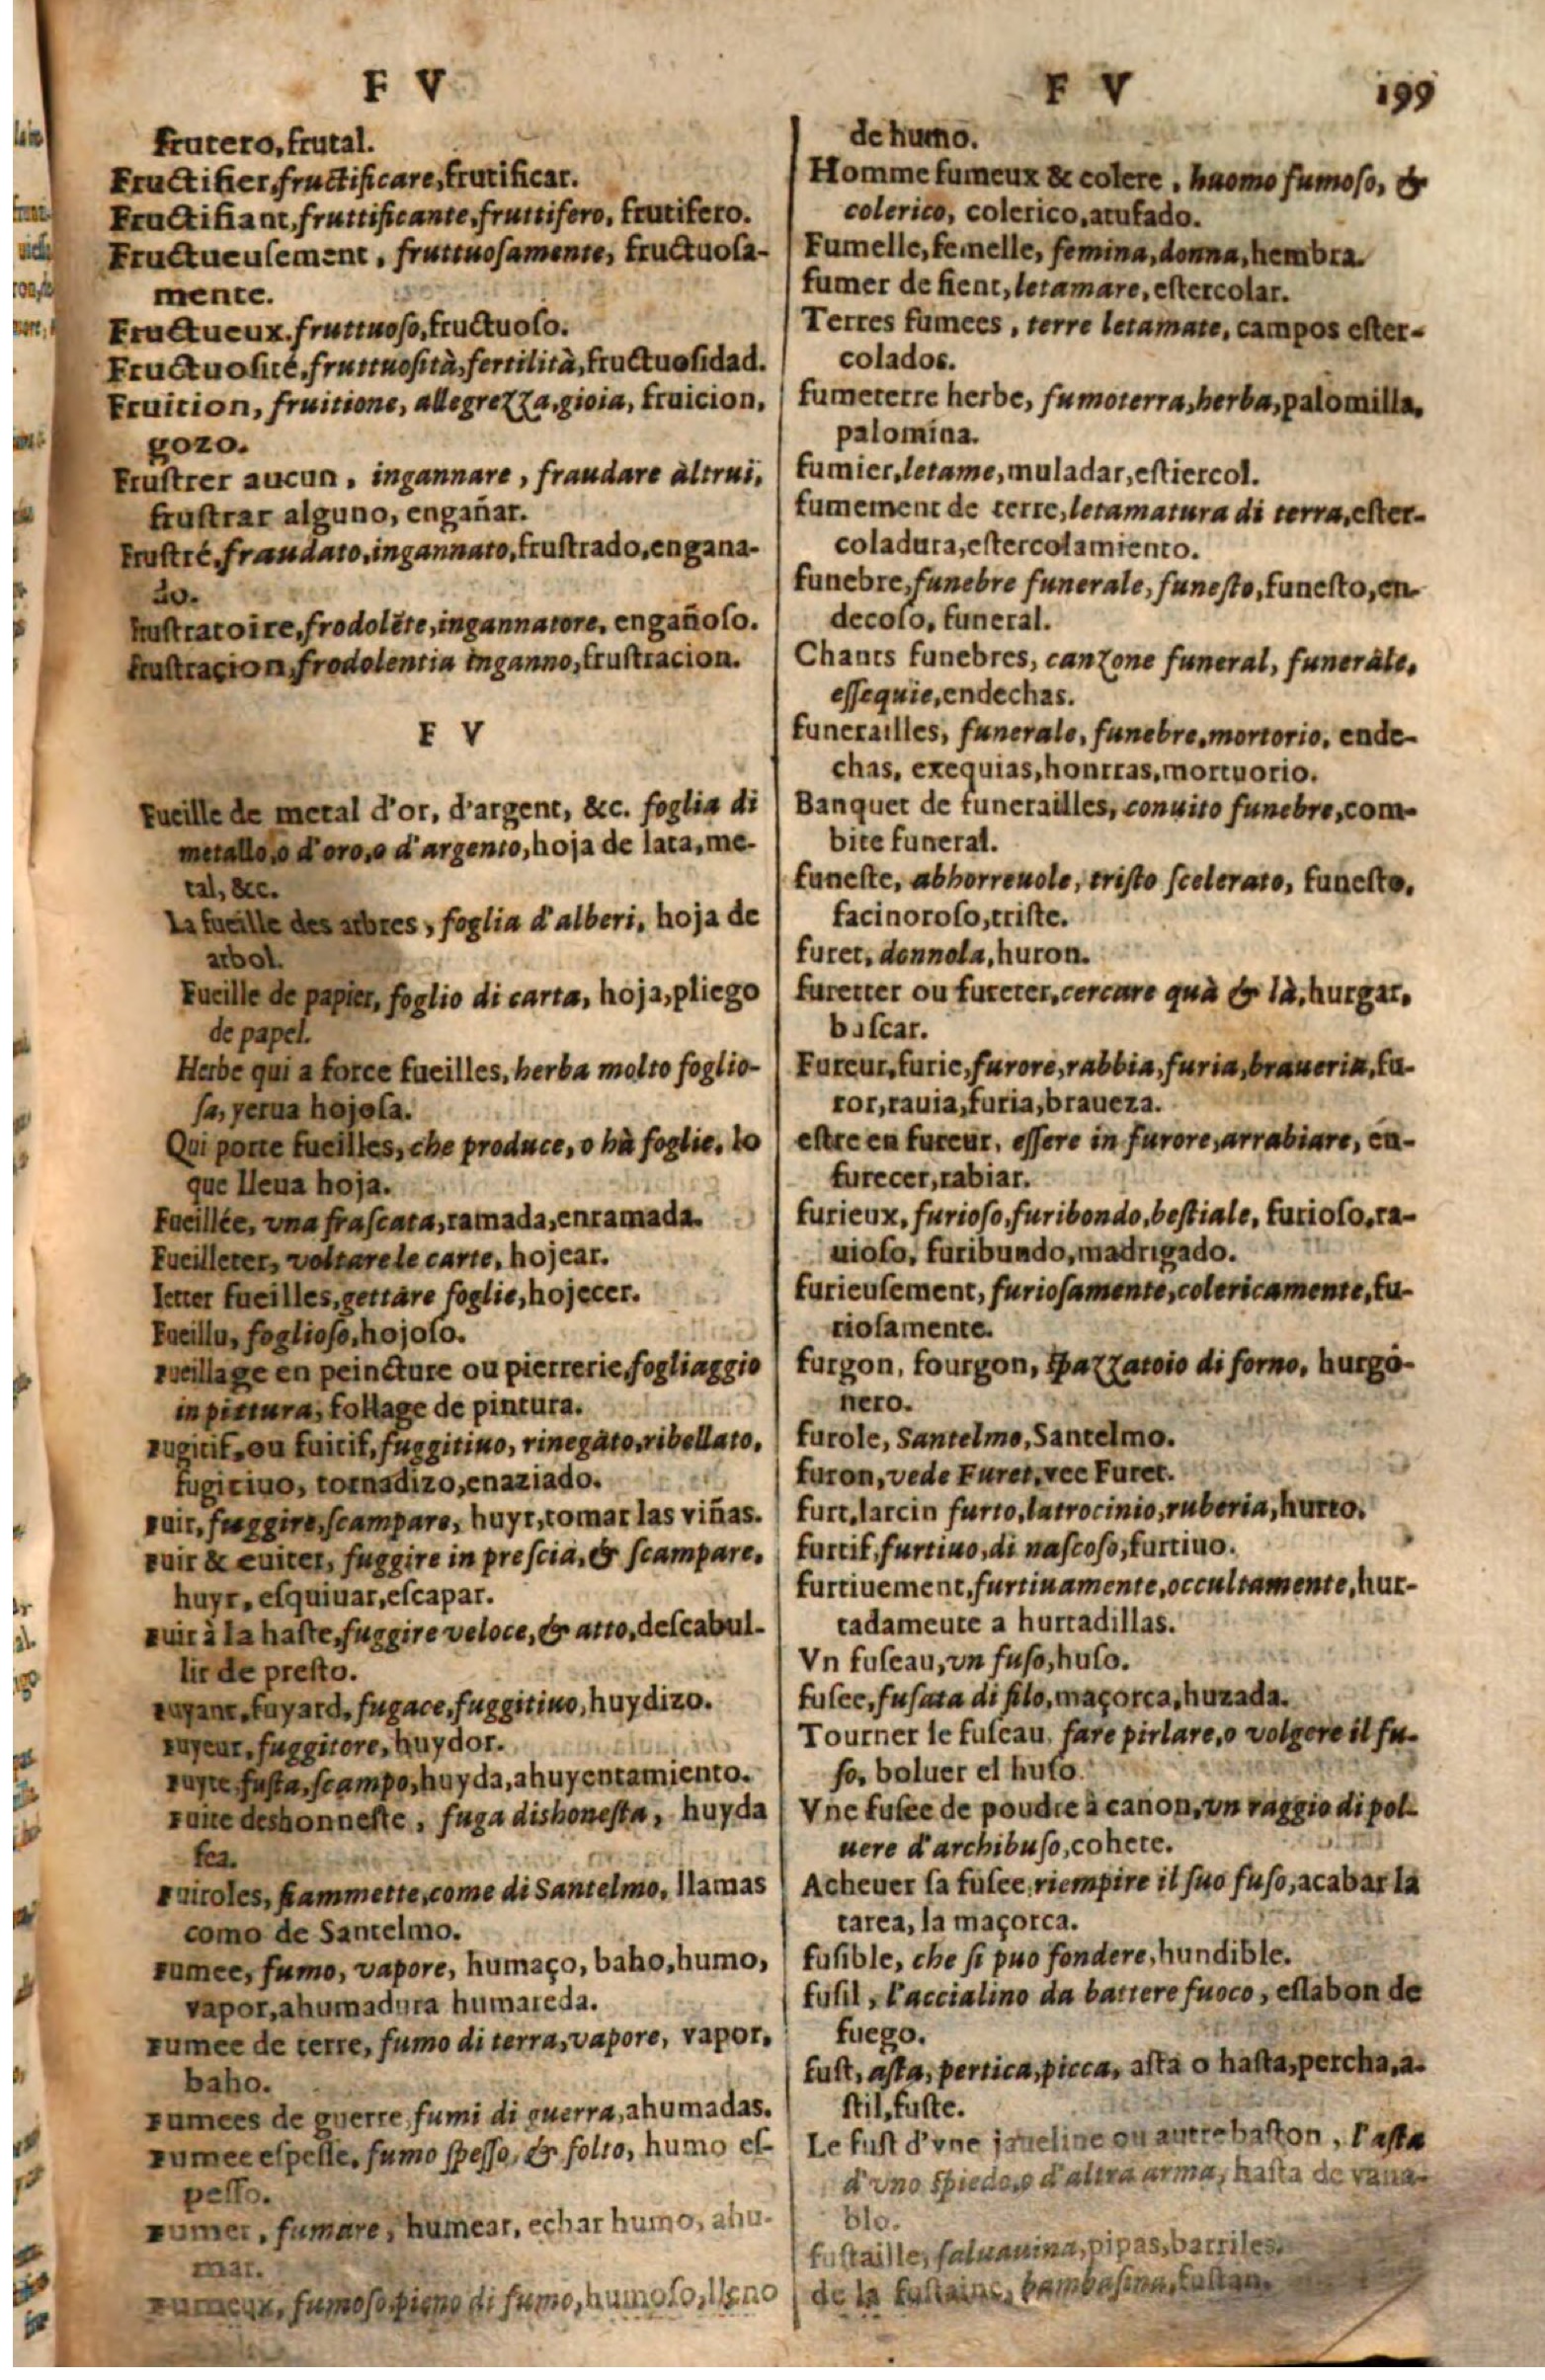 F V
frutero, frutal.
Fructifier, fructificare, frutificar.
Fructifiant, fruttificante, fruttifero, frutifero.
Fructueusement, fruttuosamente, fructuosa-
mente.
Fructueux. fruttuoso, fructuoso.
Fructuosité, fruttuosità, fertilità, fructuosidad.
Fruition, fruitione, allegrezza, gioia, fruicion,
gozo.
Frustrer aucun, ingannare, fraudare àltrui,
frustrar alguno, engañar.
Frustré, fraudato, ingannato, frustrado, engana-
do.
frustratoire, frodolẽte, ingannatore, engañoso.
frustraçion, frodolentia inganno, frustracion.
F V
Fueille de metal d'or, d'argent, &c. foglia di
metallo, o d'oro, o d'argento, hoja de lata, me-
tal, &c.
La fueille des arbres, foglia d'alberi, hoja de
arbol.
Fueille de papier, foglio di carta, hoja, pliego
de papel.
Herbe qui a force fueilles, herba molto foglio-
sa, yerua hojosa.
Qui porte fueilles, che produce, o hà foglie, lo
que lleua hoja.
Fueillée, vna frascata, ramada, enramada.
Fueilleter, voltare le carte, hojear.
Ietter fueilles, gettàre foglie, hojecer.
Fueillu, foglioso, hojoso.
Fueillage en peincture ou pierrerie, fogliaggio
in pittura, follage de pintura.
Fugitif, ou fuitif, fuggitiuo, rinegàto, ribellato,
fugitiuo, tornadizo, enaziado.
Fuir, fuggire, scampare, huyr, tomar las viñas.
Fuir & euiter, fuggire in prescia, & scampare,
huyr, esquiuar, escapar.
Fuir à la haste, fuggire veloce, & atto, descabul-
lir de presto.
Fuyant, fuyard, fugace, fuggitiuo, huydizo.
Fuyeur, fuggitore, huydor.
Fuyte fusta, scampo, huyda, ahuyentamiento.
Fuite deshonneste, fuga dishonesta, huyda
fea.
Fuiroles, fiammette, come di Santelmo, llamas
como de Santelmo.
Fumee, fumo, vapore, humaço, baho, humo,
vapor, ahumadura humareda.
Fumee de terre, fumo di terra, vapore, vapor,
baho.
Fumees de guerre fumi di guerra, ahumadas.
Fumee espesse, fumo spesso, & folto, humo es-
pesso.
Fumer, fumare, humear, echar humo, ahu-
mar.
Fumeux, fumoso, pieno di fumo, humoso, lleno
F V 199
de humo.
Homme fumeux & colere, huomo fumoso, &
colerico, colerico, atufado.
Fumelle, femelle, femina, donna, hembra.
fumer de fient, letamare, estercolar.
Terres fumees, terre letamate, campos ester-
colados.
fumeterre herbe, fumoterra, herba, palomilla,
palomina.
fumier, letame, muladar, estiercol.
fumement de terre, letamatura di terra, ester-
coladura, estercolamiento.
funebre, funebre funerale, funesto, funesto, en-
decoso, funeral.
Chants funebres, canzone funeral, funeràle,
essequie, endechas.
funerailles, funerale, funebre, mortorio, ende-
chas, exequias, honrras, mortuorio.
Banquet de funerailles, conuito funebre, com-
bite funeral.
funeste, abhorreuole, tristo scelerato, funesto,
facinoroso, triste.
furet, donnola, huron.
furetter ou fureter, cercare quà & là, hurgar,
buscar.
Fureur, furie, furore, rabbia, furia, braueria, fu-
ror, rauia, furia, braueza.
estre en fureur, essere in furore, arrabiare, en-
furecer, rabiar.
furieux, furioso, furibondo, bestiale, furioso, ra-
uioso, furibundo, madrigado.
furieusement, furiosamente, colericamente, fu-
riosamente.
furgon, fourgon, spazzatoio di forno, hurgo-
nero.
furole, Santelmo, Santelmo.
furon, vede Furet, vee Furet.
furt, larcin furto, latrocinio, ruberia, hurto.
furtif, furtiuo, di nascoso, furtiuo.
furtiuement, furtiuamente, occultamente, hur-
tadameute a hurtadillas.
Vn fuseau, vn fuso, huso.
fusee, fusata di filo, maçorca, huzada.
Tourner le fuseau, fare pirlare, o volgere il fu-
so, boluer el huso.
Vne fusee de poudre à canon, vn raggio di pol-
uere d'archibuso, cohete.
Acheuer sa fusee, riempire il suo fuso, acabar la
tarea, la maçorca.
fusible, che si puo fondere, hundible.
fusil, l'accialino da battere fuoco, eslabon de
fuego.
fust, asta, pertica, picca, asta o hasta, percha, a-
stil, fuste.
Le fust d'vne jaueline ou autre baston, l'asta
d'vno spiedo, o d'altra arma, hasta de vena-
blo.
fustaille, saluauina, pipas, barriles.
de la fustaine, bambasina, fustan.